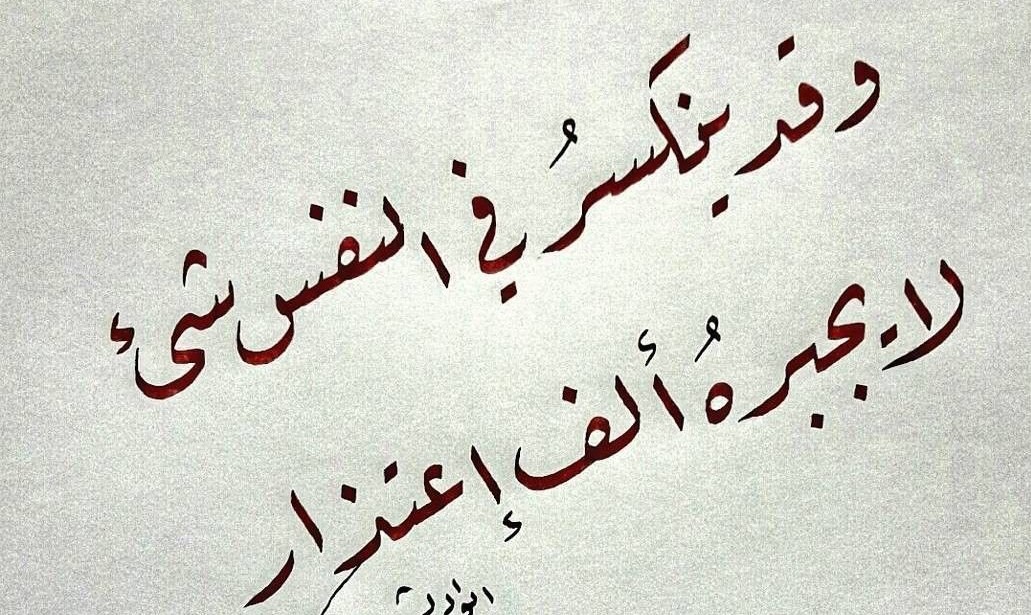 وقد ينكسرُ في النفس شئ
لا يجبرهُ ألف إعتذار